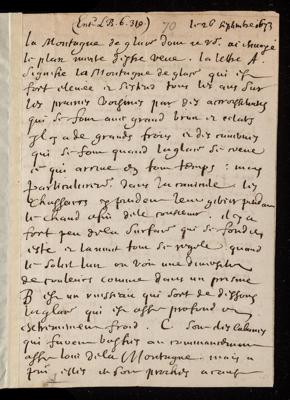 (Ent. L.B.6.310) 70 le 26 septembre 1673
la Montagne de glace dont ie vs ai envoyé
le plan merite d'estre veue. la lettre A.
signifie la Montagne de glace qui est
fort elevée et s'estend tous les ans sur
les prairies voisines par des
qui se font avec grand bruit et eclats
Il y a de grands trous et des cavernes
qui se font quand la glace se creve
ce qui arrive en tout temps: mais
particulierement dans la canicule les
chasseurs y pendent leur gibier pendant
le chaud afin de le conserver. il y a
fort peu de la surface qui se fonde en
esté et la nuit tout se regele. quand
le soleil luit on voit une diversité
de couleurs comme dans un prisme
B est un ruisseau qui sort de dessous
la glace qui est assez profond et
extremement froid. C. sont des cabanes
qui furent basties au commencement
assez loin de la Montagne. mais a
elles en sont proches